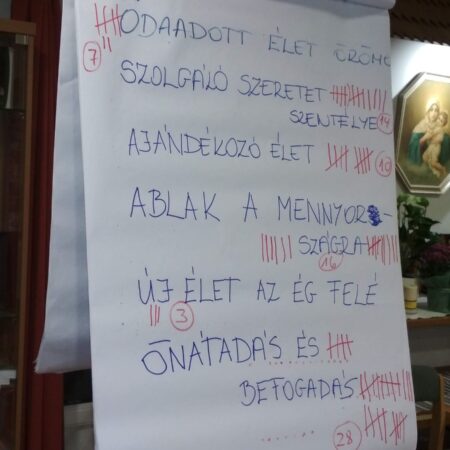 ODAADOTT ÉLET ÖRÖME
7
SZOLGÁLÓ SZERETET
SZENTÉLYE 14
AJÁNDÉKOZÓ ÉLET 10
ABLAK A MENNYOR-
SZÁGRA
16
ÚJ ÉLET AZ ÉG FELÉ
3
ÖNÁTADÁS ÉS
BEFOGADÁS
28